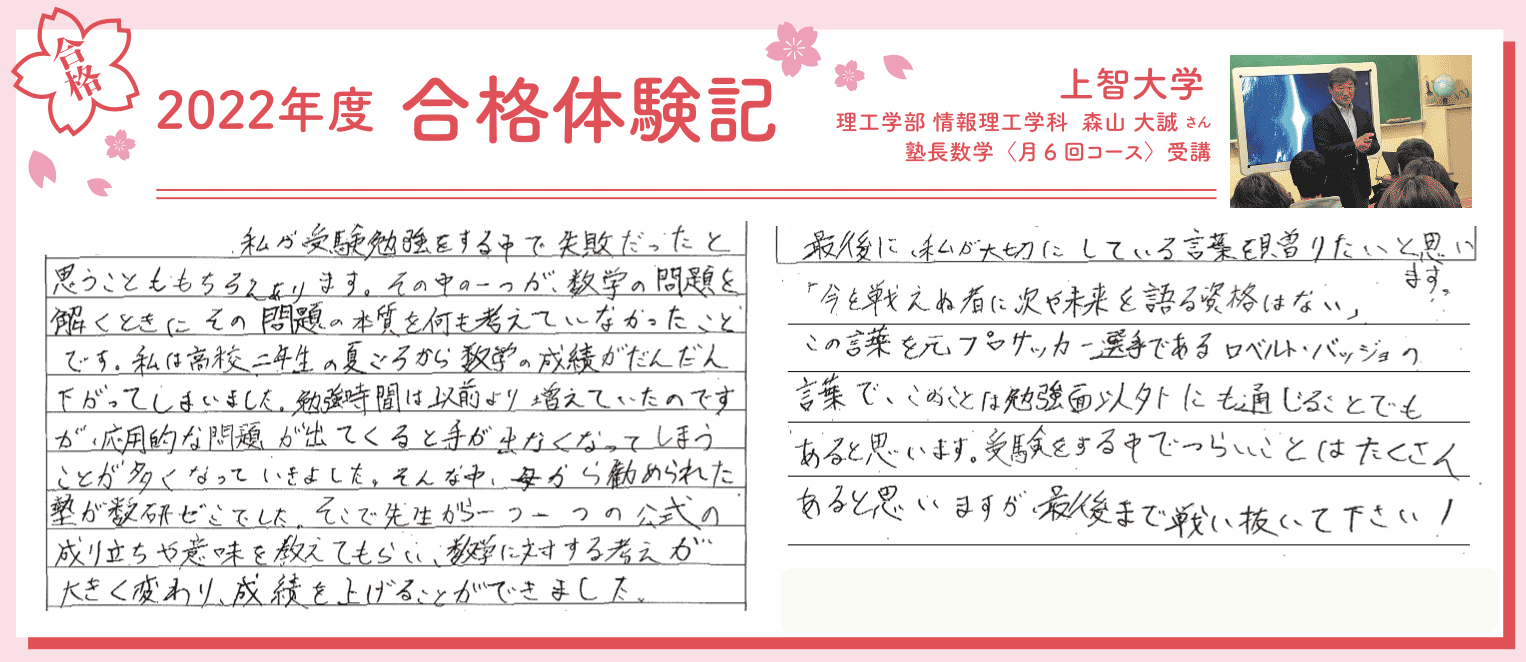 合格
2022年度 合格体験記
上智大学
理工学部 情報理工学科 森山 大誠 さん
塾長数学〈月6回コース〉受講
私が受験勉強をする中で失敗だったと
思うことももちろんあります。その中の一つが、数学の問題を
解くときにその問題の本質を何も考えていなかったこと
です。私は高校二年生の夏ごろから数学の成績がだんだん
下がってしまいました。勉強時間は以前より増えていたのです
が、応用的な問題が出てくると手が出なくなってしまう
ことが多くなっていきました。そんな中、母から勧められた
塾が数研ゼミでした。そこで先生から一つ一つの公式の
成り立ちや意味を教えてもらい、数学に対する考えが
大きく変わり、成績を上げることができました。
最後に、私が大切にしている言葉を贈りたいと思い
ます。
「今を戦えぬ者に次や未来を語る資格はない」
この言葉を元プロサッカー選手であるロベルト・バッジョの
言葉で、このことは勉強面以外にも通じることでも
あると思います。受験をする中でつらいことはたくさん
あると思いますが最後まで戦い抜いて下さい!